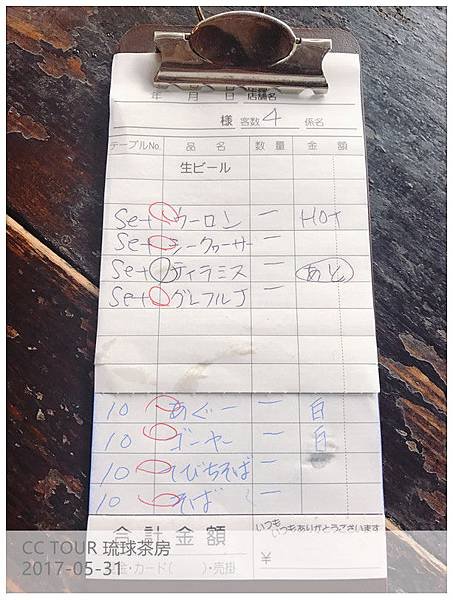 年 月 日 店舗名
様 客数 4 係名
テーブルNo. 品名 数量 金額
生ビール
Set ウーロン 一 Hot
Set シークワーサー 一
Set ティラミス 一 あと
Set グレフルJ 一
10 あぐー 一 白
10 ゴーヤー 一 白
10 てびちそば 一
10 そば 一
合計金額
いつも
いつもありがとうございます
¥
金・カード( )・売掛
CC TOUR 琉球茶房
2017-05-31